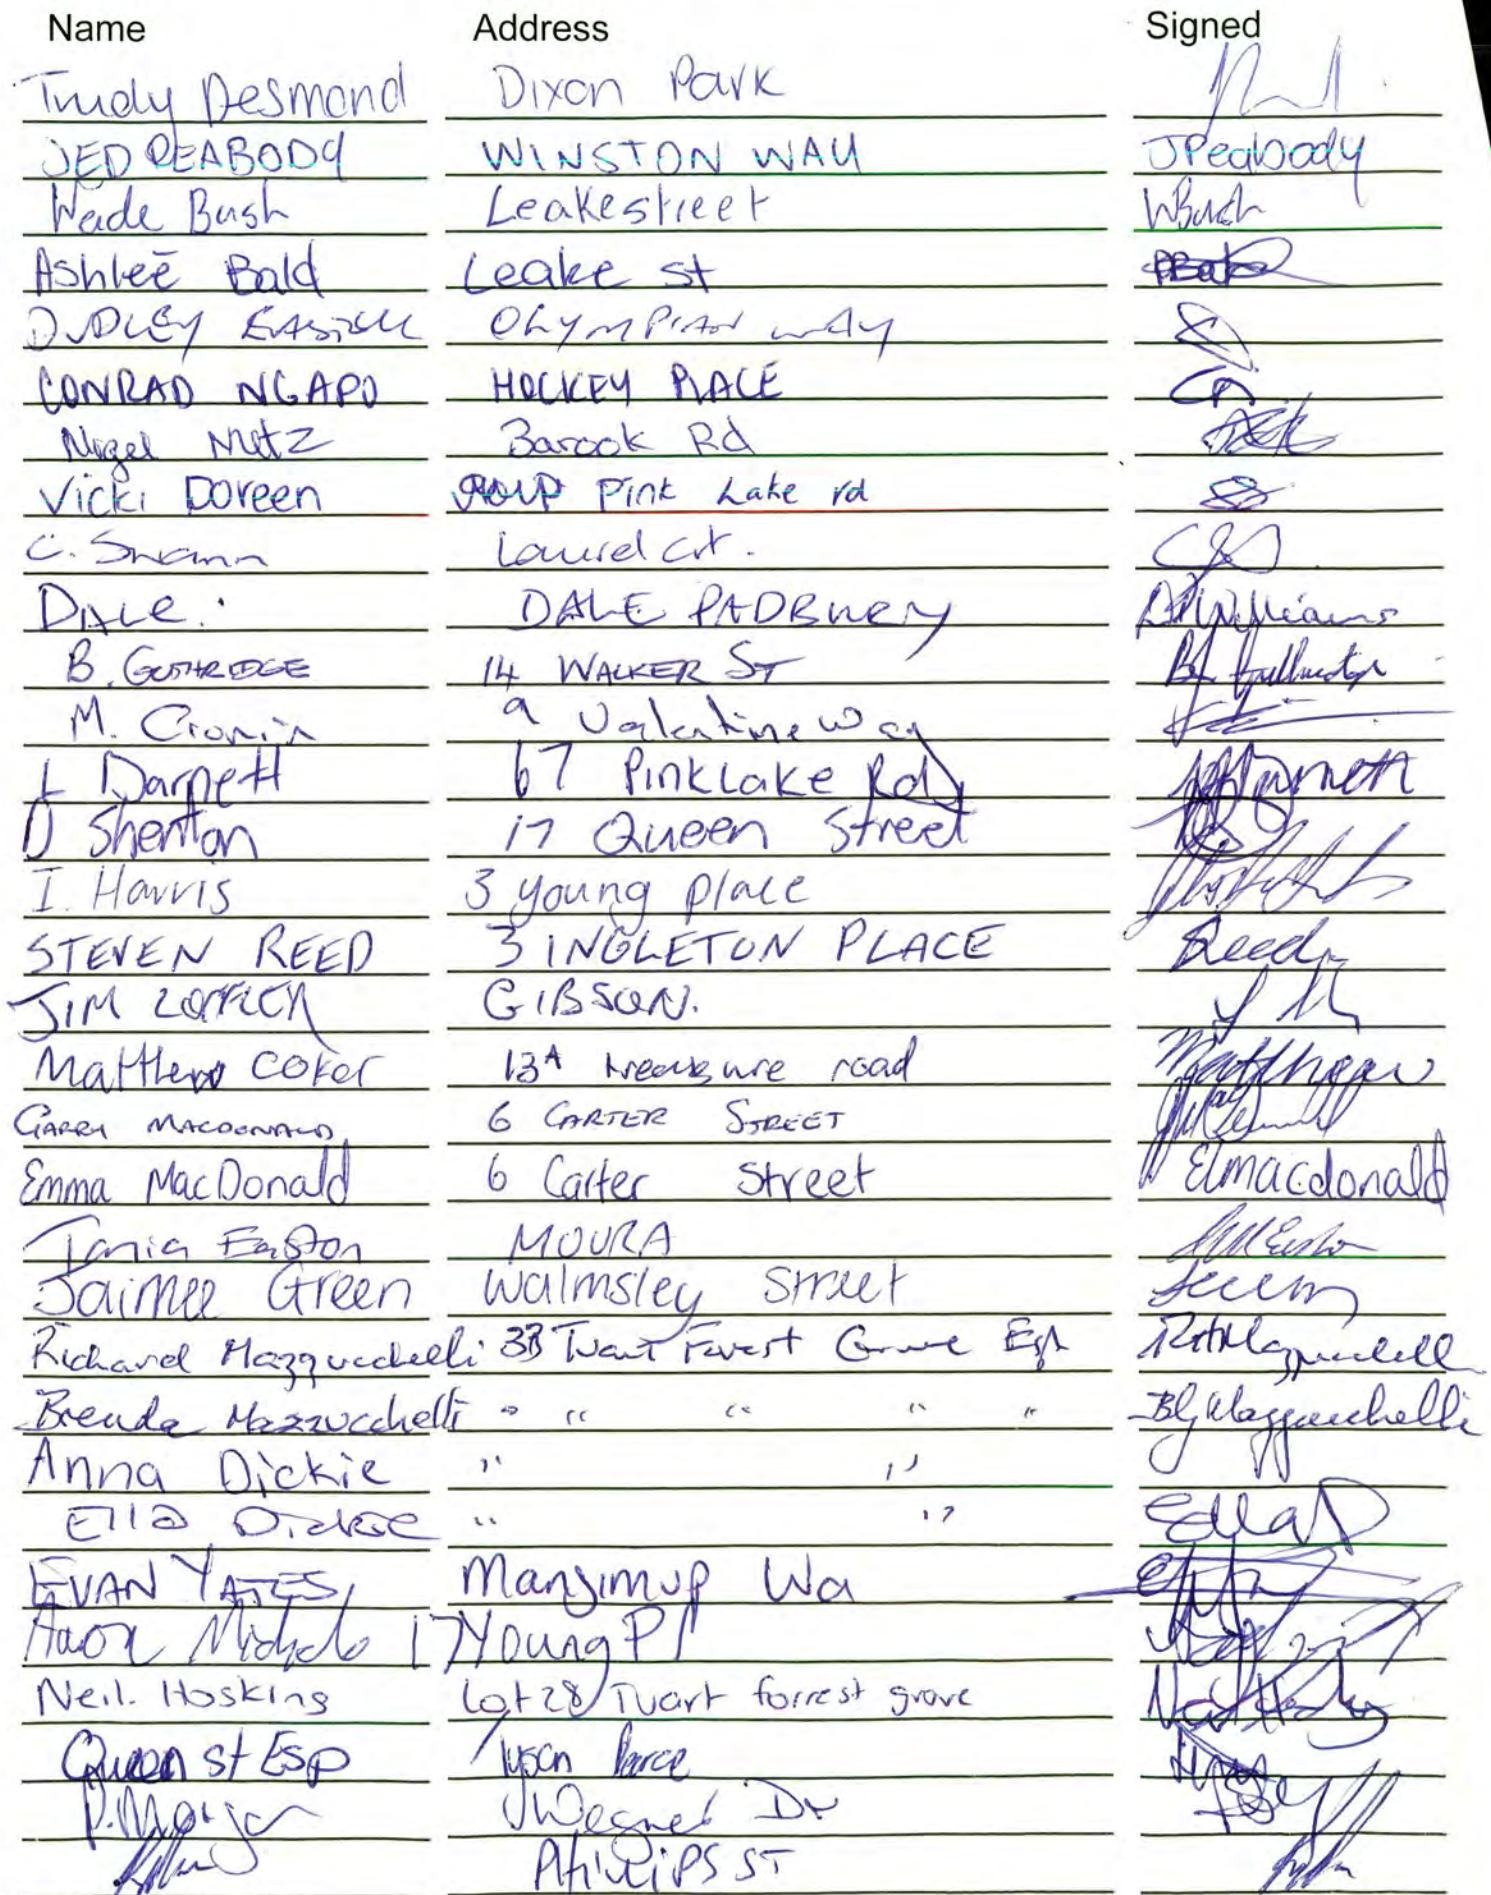 Name Address Signed
Trudy Desmond Dixon Park
JED PEABODY WINSTON WAY JPeabody
Wade Bush Leakestreet WBush
Ashlee Bald Leake st
DUDLEY OLYMPIAN WAY
CONRAD NGAPO HOCKEY PLACE
Nigel Mutz Barook Rd
Vicki Doreen Pink Lake rd
C. Swann Laurel crt.
DALE. DALE PADBURY Williams
B. GUTHRIDGE 14 WALKER ST
M. Cronin 9 Valentine Way
L Darnett 67 Pink Lake Rd
D Shenton 17 Queen Street
I. Harris 3 young place
STEVEN REED 3 INGLETON PLACE Reed
JIM GIBSON.
Matthew Coker 13A treasure road Matthew
GARRY MACDONALD 6 CARTER STREET
Emma MacDonald 6 Carter Street Elmacdonald
Tania Easton MOURA
Jaimee Green Walmsley Street
Richard Mazzucchelli 33 Tuart Forest Grove Esp
Brenda Mazzucchelli " " " " " BGMazzucchelli
Anna Dickie " "
Ella Dickie " " Ella D
EVAN YATES Manjimup Wa
17 Young Pl
Neil. Hoskins Lot 28 Tuart forrest grove
Queen st Esp Tyson Pearce
Wegner Dr
PHILLIPS ST